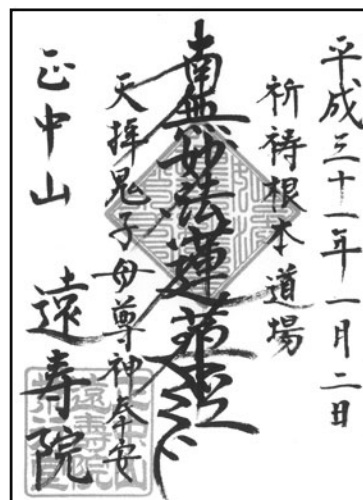 平成三十一年一月二日
祈祷根本道場
南無妙法蓮華経
天拝鬼子母尊神奉安
正中山
遠寿院